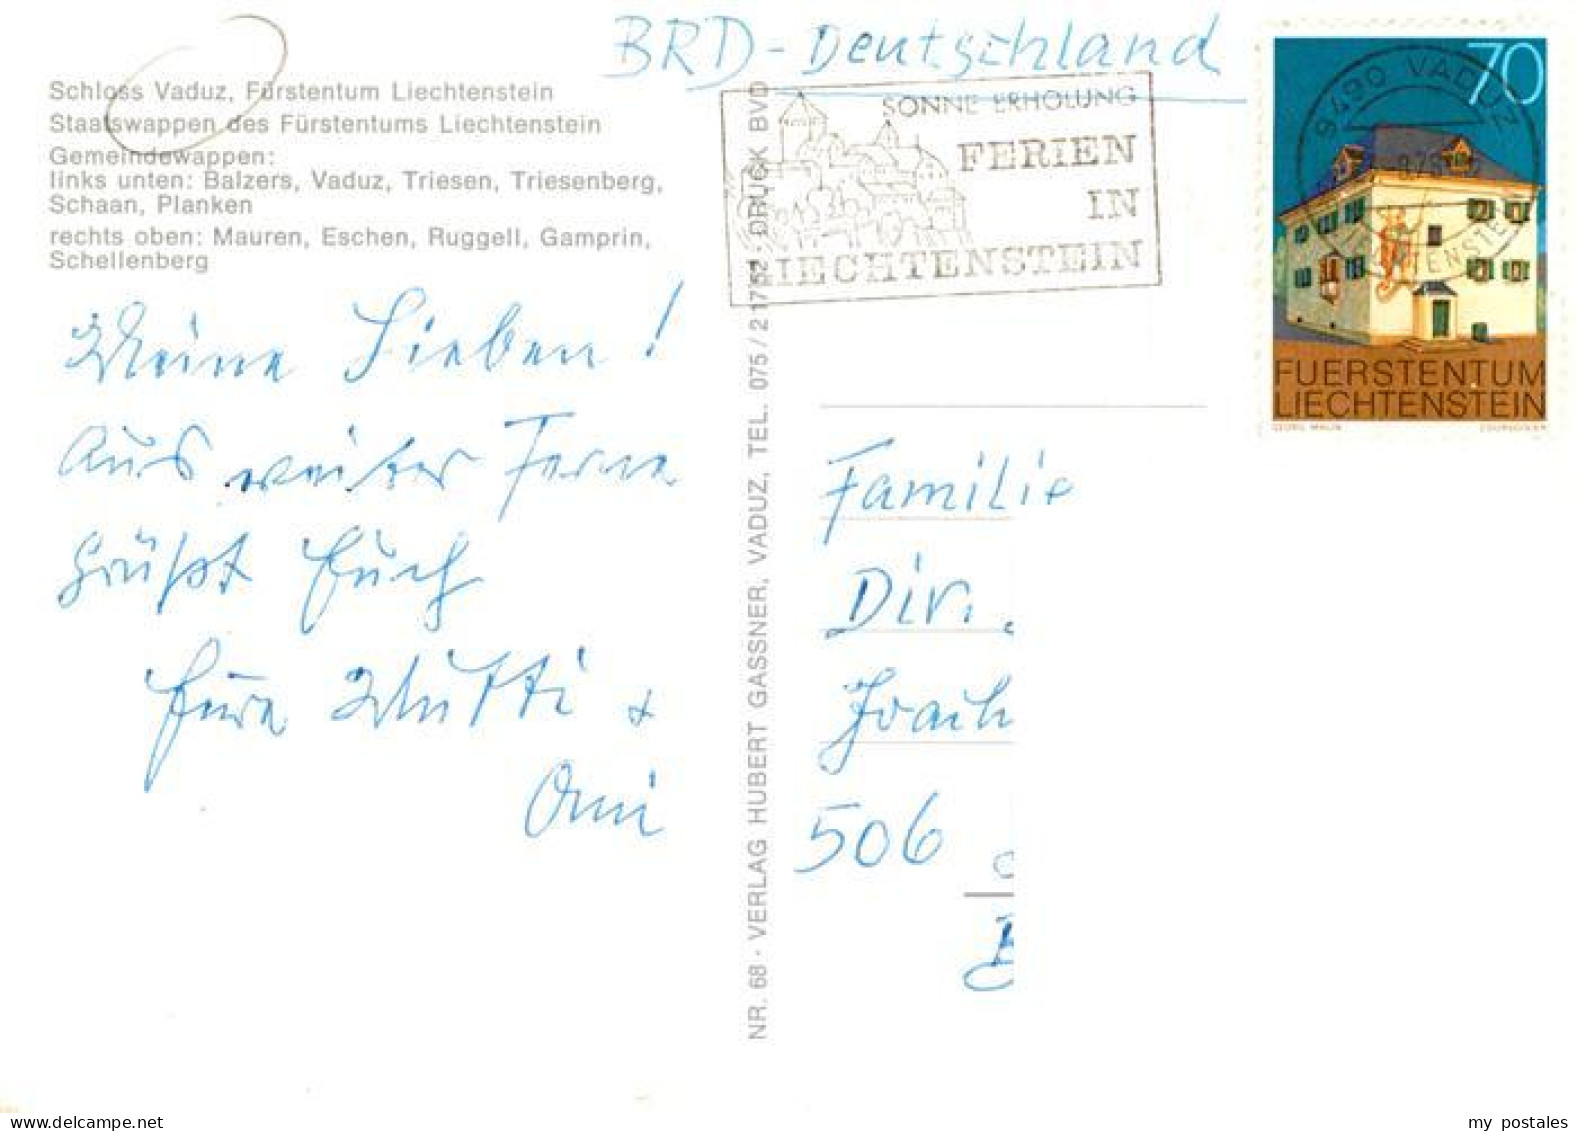 BRD-Deutschland
Schloss Vaduz, Fürstentum Liechtenstein
Staatswappen des Fürstentums Liechtenstein
Gemeindewappen:
links unten: Balzers, Vaduz, Triesen, Triesenberg,
Schaan, Planken
rechts oben: Mauren, Eschen, Ruggell, Gamprin,
Schellenberg
Meine Lieben!
Aus weiter Ferne
grüßt Euch
Eure Mutti +
Omi
NR. 68 · VERLAG HUBERT GASSNER, VADUZ, TEL. 075 / 2 17 52 · DRUCK BVD
SONNE ERHOLUNG
FERIEN
IN
LIECHTENSTEIN
70
9490 VADUZ
FUERSTENTUM
LIECHTENSTEIN
GEORG MALIN
COURVOISIER
Familie
Dir.
Joach
506
my postales